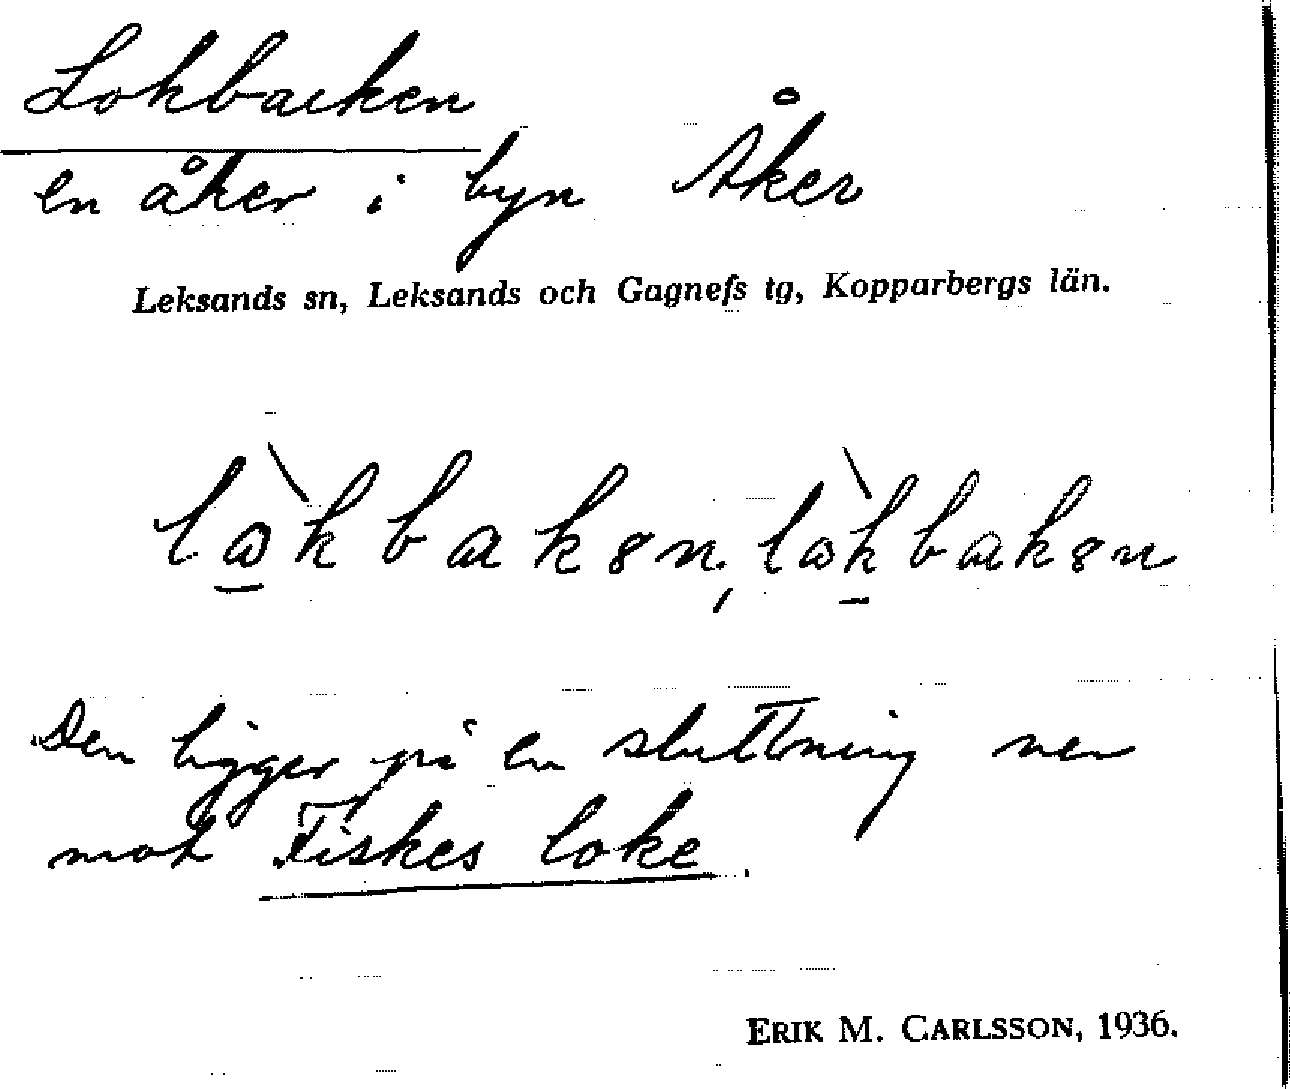 Lokbacken
en åker i byn Åker
Leksands sn, Leksands och Gagnefs tg, Kopparbergs län.
Den ligger på en sluttning ner
mot Fiskes loke.
ERIK M. CARLSSON, 1936.